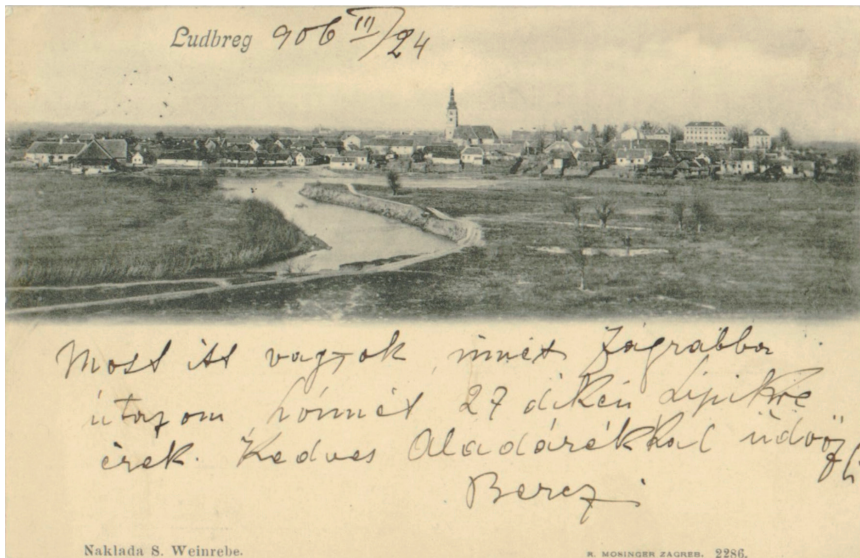 Ludbreg 906 III/24
Most itt vagyok, innét Zágrábba
útazom, honnét 27 dikén Lipikre
érek. Kedves Aladárékkal üdvözli
Berczi
Naklada S. Weinrebe.
R. MOSINGER ZAGREB. 2286.